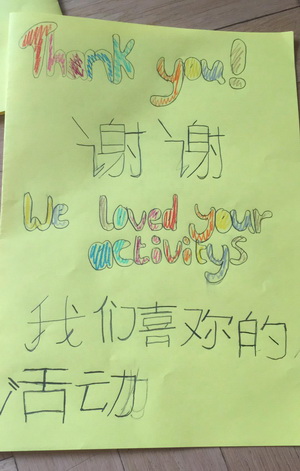 Thank you!
谢谢
We loved your
activitys
我们喜欢你的
活动